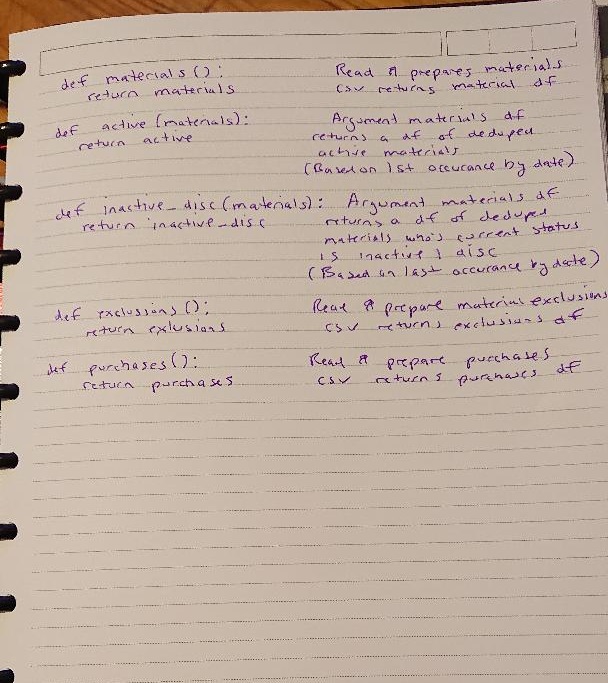 def materials():
return materials
Read & prepares materials
csv returns material df
def active (materials):
return active
Argument materials df
returns a df of deduped
active materials
(Based on 1st occurance by date)
def inactive_disc (materials):
return inactive_disc
Argument materials df
returns a df of deduped
materials who's current status
is inactive & disc
(Based on last occurance by date)
def exclusions():
return exlusions
Read & prepare material exclusions
csv returns exclusions df
def purchases():
return purchases
Read & prepare purchases
csv returns purchases df